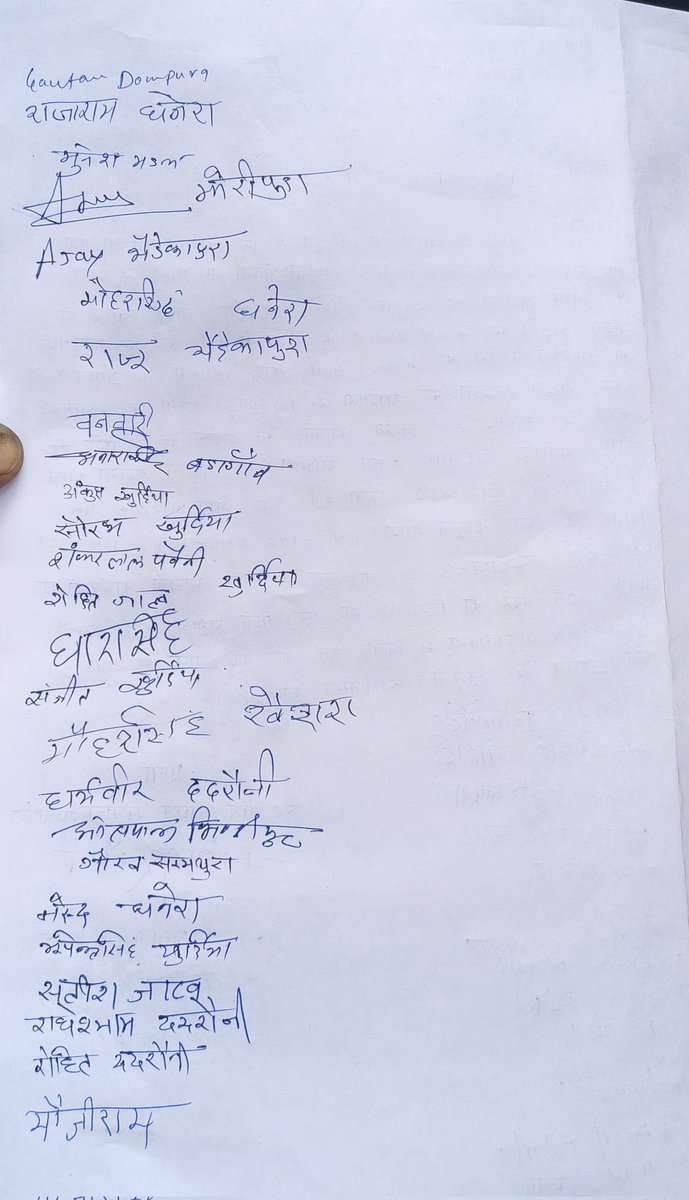 Gautam Dompura
राजाराम धनेरा
मुनेश मडल
मोरीपुरा
Ajay भैडेकापुरा
मोहरसिंह धनेरा
राज भैंडेकापुरा
बनवारी
बडागाँव
अंकुश खुर्दिया
सौरभ खुर्दिया
शंकरलाल पवैनी
रोहित जाटव खुर्दिया
धारासिंह
संजीत खुर्दिया
मौहरसिंह
धर्मवीर ददरौनी
गौरव सरमथुरा
धनेरा
भूपेन्द्रसिंह खुर्दिया
सतीश जाटव
राधेश्याम ददरौनी
रोहित ददरौनी
मौजीराम